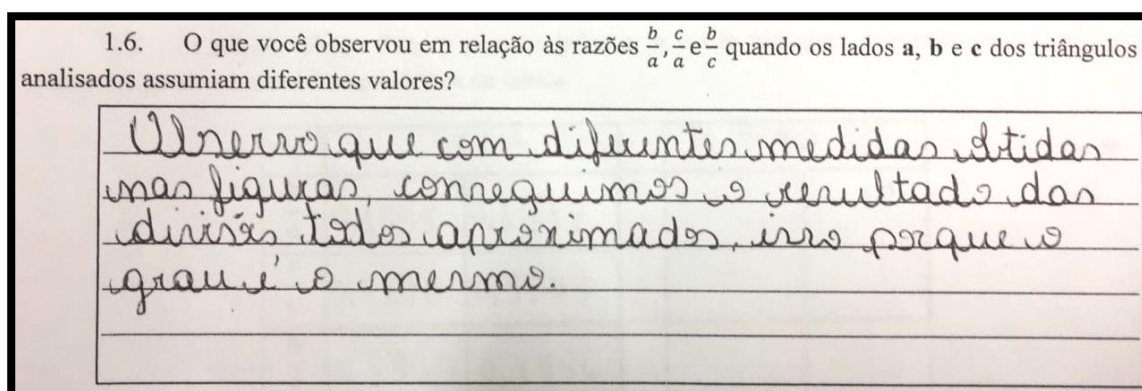 1.6. O que você observou em relação às razões b/a, c/a e b/c quando os lados a, b e c dos triângulos
analisados assumiam diferentes valores?
Observo que com diferentes medidas obtidas
nas figuras, conseguimos o resultado das
divisões todos aproximados, isso porque o
grau é o mesmo.